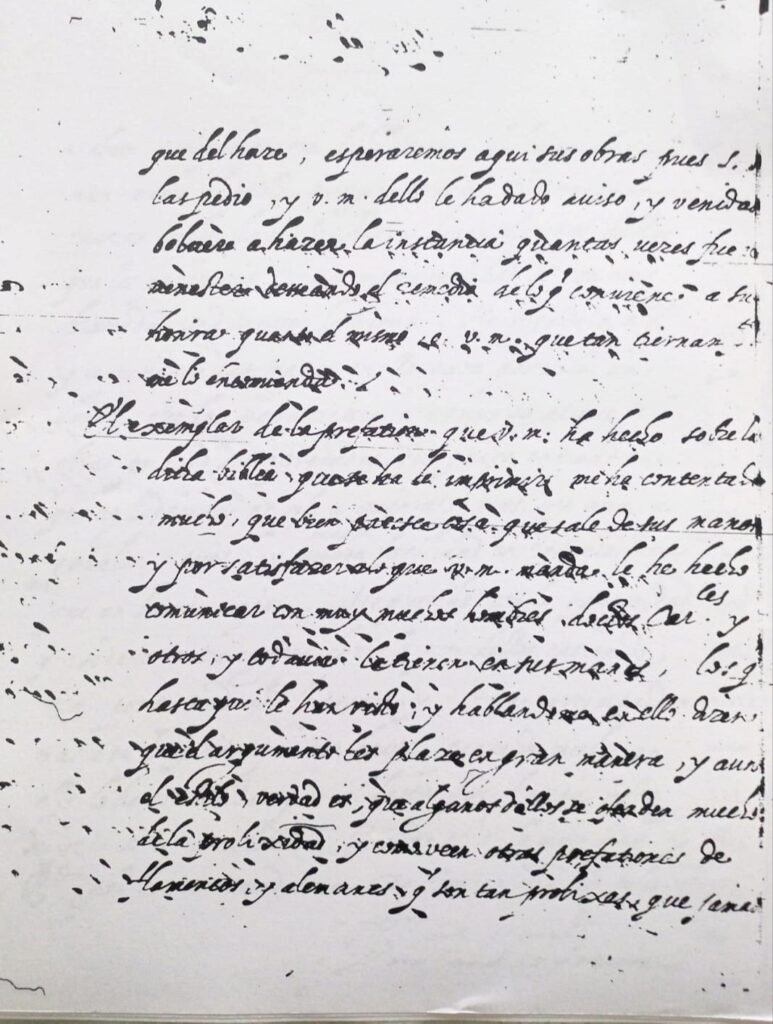 que del haze, esperaremos aqui sus obras pues S.
las pedio, y v. m. dello le ha dado aviso, y venidas
bolvere a hazer la instancia quantas vezes fue
menester desseando el remedio de lo q̃ conviene a su
honra quanto el mismo e v. m. que tan tiernam.te
me lo encomienda.
El exemplar de la prefatione que v. m. ha hecho sobre la
dicha biblia que se ha de imprimir me ha contentado
mucho, que bien paresce cosa que sale de sus manos
y por satisfazer a lo que v. m. manda le he hecho
comunicar con muy muchos hombres doctos Car.les y
otros, y todavia le tienen en sus manos, los q̃
hasta qui le han visto, y hablandome en ello dizen
que el argumento les plaze en gran manera, y aun
el estilo, verdad es, que algunos dellos se ofenden mucho
de la prolixidad, y como veen otras prefationes de
flamencos, y alemanes q̃ son tan prolixas, que jamas